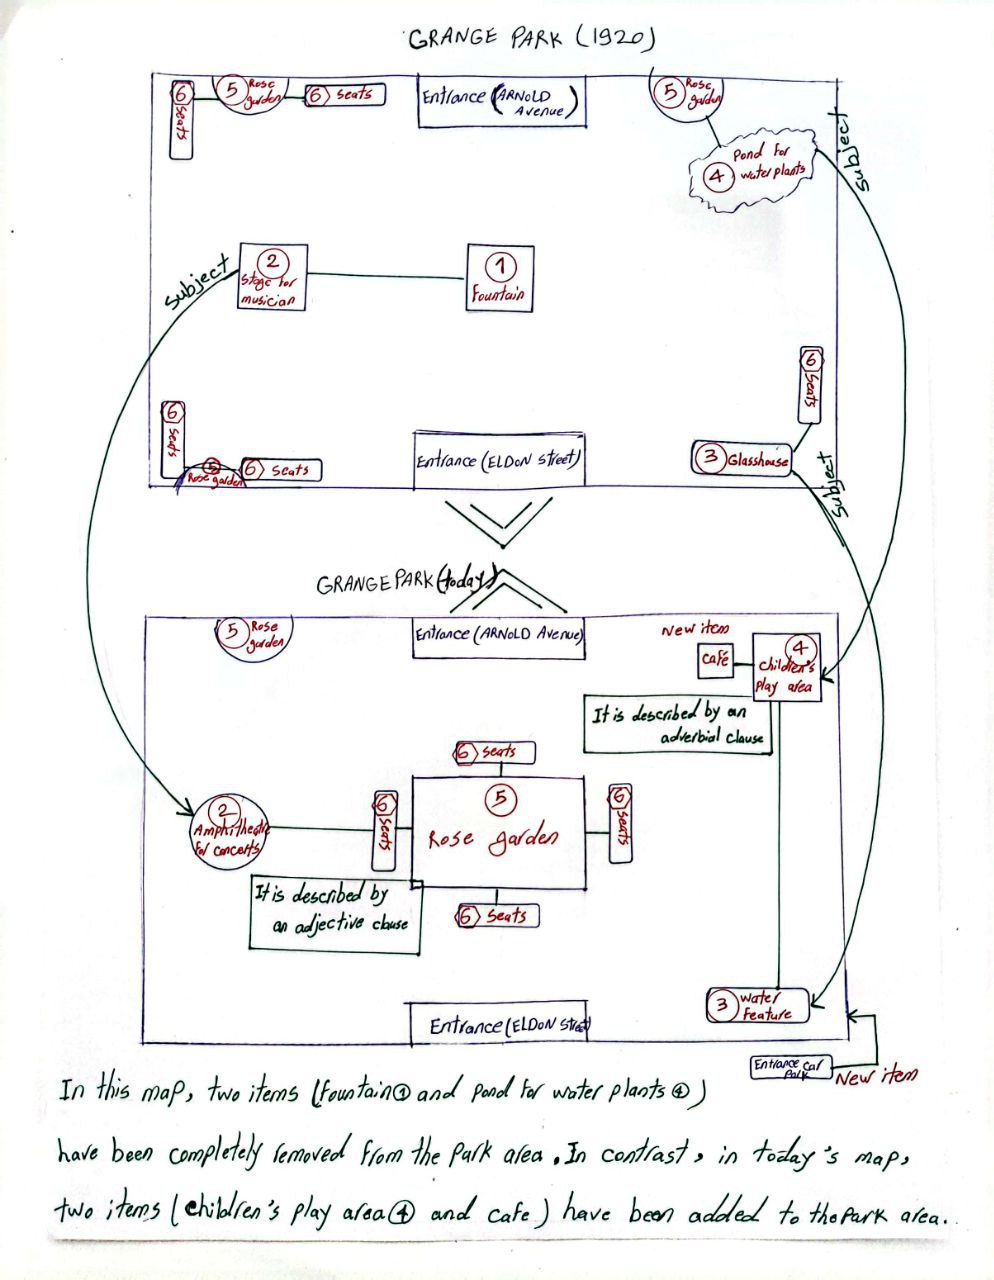 GRANGE PARK (1920)
6 Seats
5 Rose garden
6 Seats
Entrance (ARNOLD Avenue)
5 Rose garden
4 Pond for water plants
Subject
Subject
2 Stage for musician
1 Fountain
6 Seats
6 Seats
5 Rose garden
6 Seats
Entrance (ELDON Street)
3 Glasshouse
Subject
GRANGE PARK (today)
5 Rose garden
Entrance (ARNOLD Avenue)
New item
café
4 children's play area
It is described by an
adverbial clause
6 Seats
2 Amphitheatre for concerts
6 Seats
5 Rose garden
6 Seats
It is described by
an adjective clause
6 Seats
3 Water Feature
Entrance (ELDON Street)
Entrance car Park
New item
In this map, two items (fountain① and pond for water plants④)
have been completely removed from the park area. In contrast, in today's map,
two items (children's play area④ and cafe) have been added to the park area.